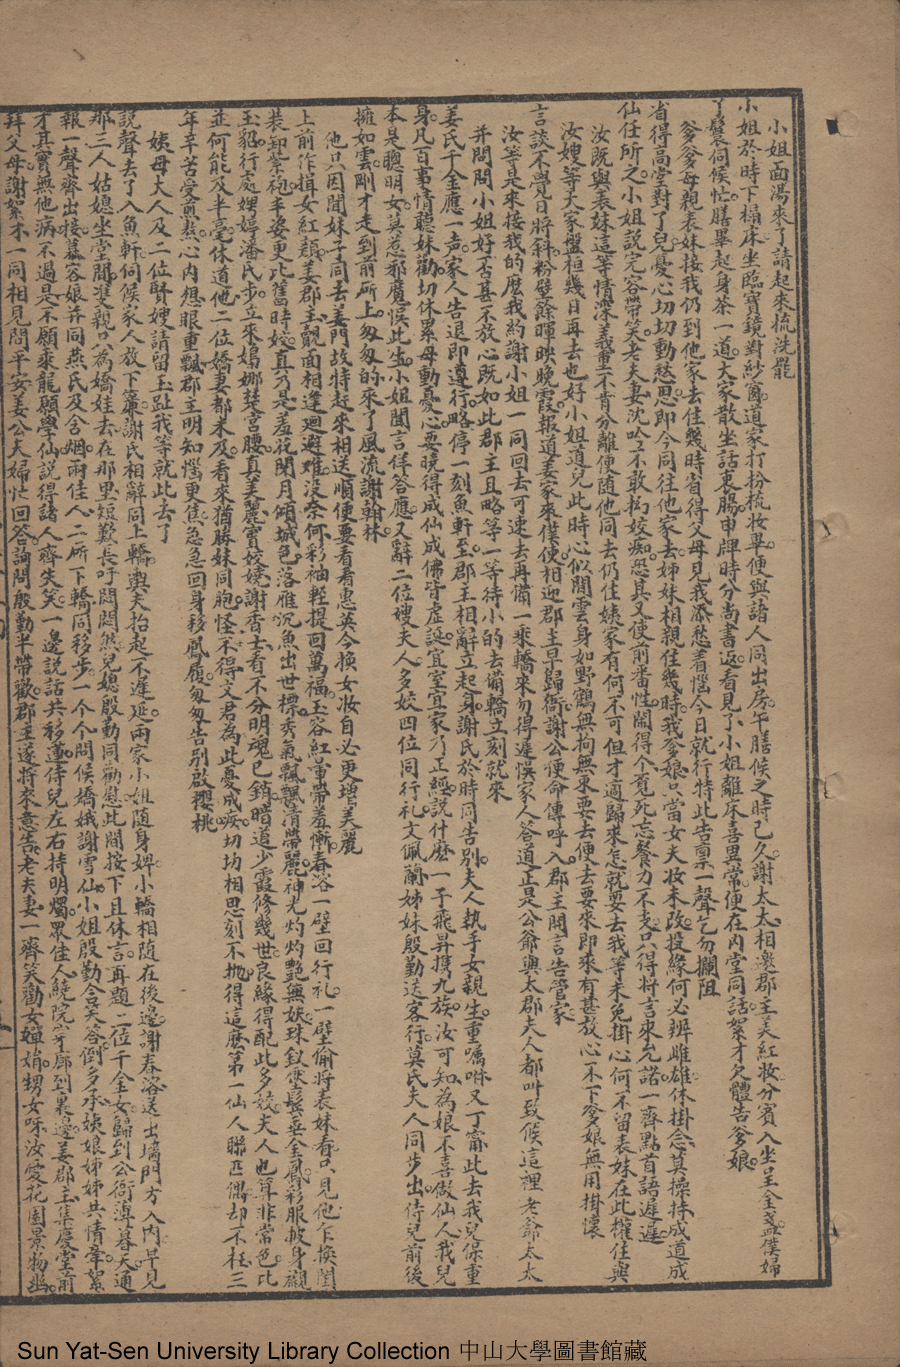 小姐面湯來了請起來梳洗罷
小姐於時下榻床坐臨寶鏡對紗窗道家打扮梳妝畢便與諸人同出房午膳候之時已久謝太太相邀郡主美紅妝分賓入坐呈全盞僕婦
丫鬟伺候忙膳畢起身茶一道大家散坐話衷腸申牌時分尚書返看見了小姐離床喜異常便在內堂同話絮才欠體告爹娘
爹爹母親表妹接我仍到他家去住幾時省得父母見我添愁着惱今日就行特此告稟一聲乞勿攔阻
省得高堂對了兒憂心切切動愁思即今同往他家去姊妹相親住幾時我爹娘只當女夫妝未改投緣何必辨雌雄休掛念莫操持成道成
仙任所之小姐說完容帶笑老夫妻沈吟不敢拘姣痴恐其又使前番性鬧得个覓死忘餐力不支只得將言來允諾一齊點首語遲遲
汝既與表妹這等情深義重不肯分離便隨他同去仍住姨家有何不可但才適歸來怎就要去我等未免掛心何不留表妹在此權住與
汝嫂等大家盤桓幾日再去也好小姐道兒此時心似閒雲身如野鶴無拘無束要去便去要來即來有甚放心不下爹娘無用掛懷
言談不覺日將斜粉壁餘暉映晚霞報道姜家來僕使相迎郡主早歸衙謝公便命傳呼入郡主開言告管家
汝等是來接我的麼我約謝小姐一同回去可速去再備一乘轎來勿得遲悞家人答道正是公爺與太郡夫人都叫致候這裡老爺太太
并問問小姐好否甚不放心既如此郡主且略等一等待小的去備轎立刻就來
姜氏千金應一声家人告退即遵行略停一刻魚軒至郡主相辭立起身謝氏於時同告別夫人執手女親生重囑咐又丁甯此去我兒保重
身凡百事情聽妹勸切休累母動憂心要曉得成仙成佛皆虛誕宜室宜家乃正經說什麼一子飛昇携九族汝可知為娘不喜做仙人我兒
本是聰明女莫惹邪魔悞此生小姐聞言佯答應又辭二位嫂夫人多姣四位同行礼文佩蘭姊妹殷勤送客行莫氏夫人同步出侍兒前後
擁如雲剛才走到前所上匆匆的來了風流謝翰林
他只因聞妹子同去姜門故特赶來相送順便要看看惠英今換女妝自必更增美麗
上前作揖女紅顏姜郡主覿面相逢迴避难沒奈何彩袖輕提回萬福玉容紅暈帶羞慚春溶一壁回行礼一壁偷將表妹看只見他乍換閨
裝卸紫袍丰姿更比舊時姣真乃是羞花閉月傾城色落雁沉魚出世標秀氣飄飄清帶麗神光灼灼艷無妖珠釵壓鬢垂金鳳彩服披身襯
玉貂行處娌婷潘氏步立來嫋娜楚宮腰真美麗實姣嬈謝香士看不分明魂已銷暗道少霞修幾世良緣得配此多姣夫人也算非常色比
並何能及半毫休道他二位嬌妻都未及看來猶勝妹同胞怪不得文君為此憂成疾切切相思刻不拋得這麼第一仙人聯匹偶却不枉三
年辛苦受煎熬心內想眼重飄郡主明知惱更焦急急回身移鳳履匆匆告別啟櫻桃
姨母大人及二位賢嫂請留玉趾我等就此去了
說聲去了入魚軒伺候家人放下簾謝氏相辭同上轎輿夫抬起不遲延兩家小姐随身婢小轎相随在後邊謝春溶送出墻門方入內早見
那三人姑媳坐堂間雙親只為嬌娃去在那里短歎長吁悶悶然兒媳殷勤同勸慰此間按下且休言再題二位千金女歸到公衙薄暮天通
報一聲齊出接慕容娘并同燕氏及含烟兩佳人二所下轎同移步一个个問候嬌娥謝雪仙小姐殷勤含笑答倒多承姨娘姊姊共情牽絮
才其實無他病不過是不願乘龍願學仙說得諸人齊失笑一邊說話共移蓮侍兒左右持明燭眾佳人繞院穿廊到裏邊姜郡主集慶堂前
拜父母謝絮才一同相見問平安姜公夫婦忙回答詢問殷勤半帶歡郡主遂將來意告老夫妻一齊笑勸女嬋娟甥女呀汝愛花園景物幽
Sun Yat-Sen University Library Collection 中山大學圖書館藏